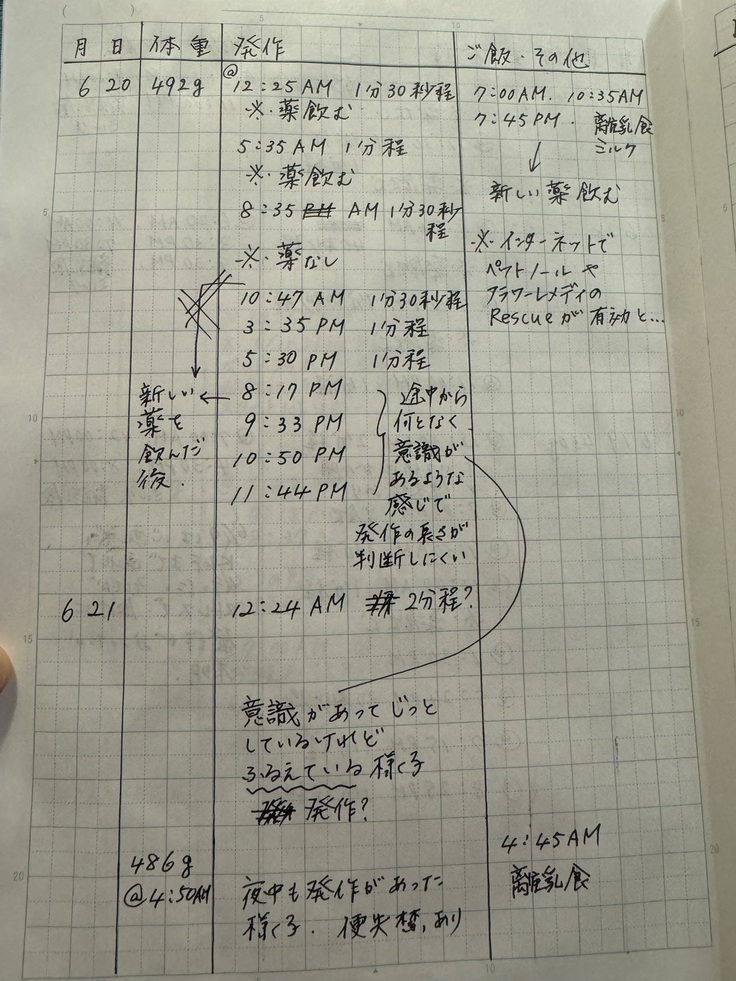 月 日 体重 発作 ご飯・その他
6 20 492g @12:25AM 1分30秒程 7:00AM. 10:35AM
※・薬飲む 7:45PM. 離乳食
5:35AM 1分程 ミルク
※・薬飲む ↓
新しい薬飲む
8:35 AM 1分30秒
程
※・薬なし
※・インターネットで
ペットノールや
フラワーレメディの
Rescueが有効と...
10:47 AM 1分30秒程
3:35 PM 1分程
5:30 PM 1分程
新しい ← 8:17 PM
薬を
飲んだ
後.
9:33 PM
10:50 PM
11:44 PM
途中から
何となく
意識が
あるような
感じで
発作の長さが
判断しにくい
6 21 12:24 AM 2分程?
意識があってじっと
しているけれど
ふるえている様子
発作?
486g
@4:50AM
夜中も発作があった
様子. 便失禁,あり
4:45AM
離乳食
5
10
5
10
15
20
10
15
20